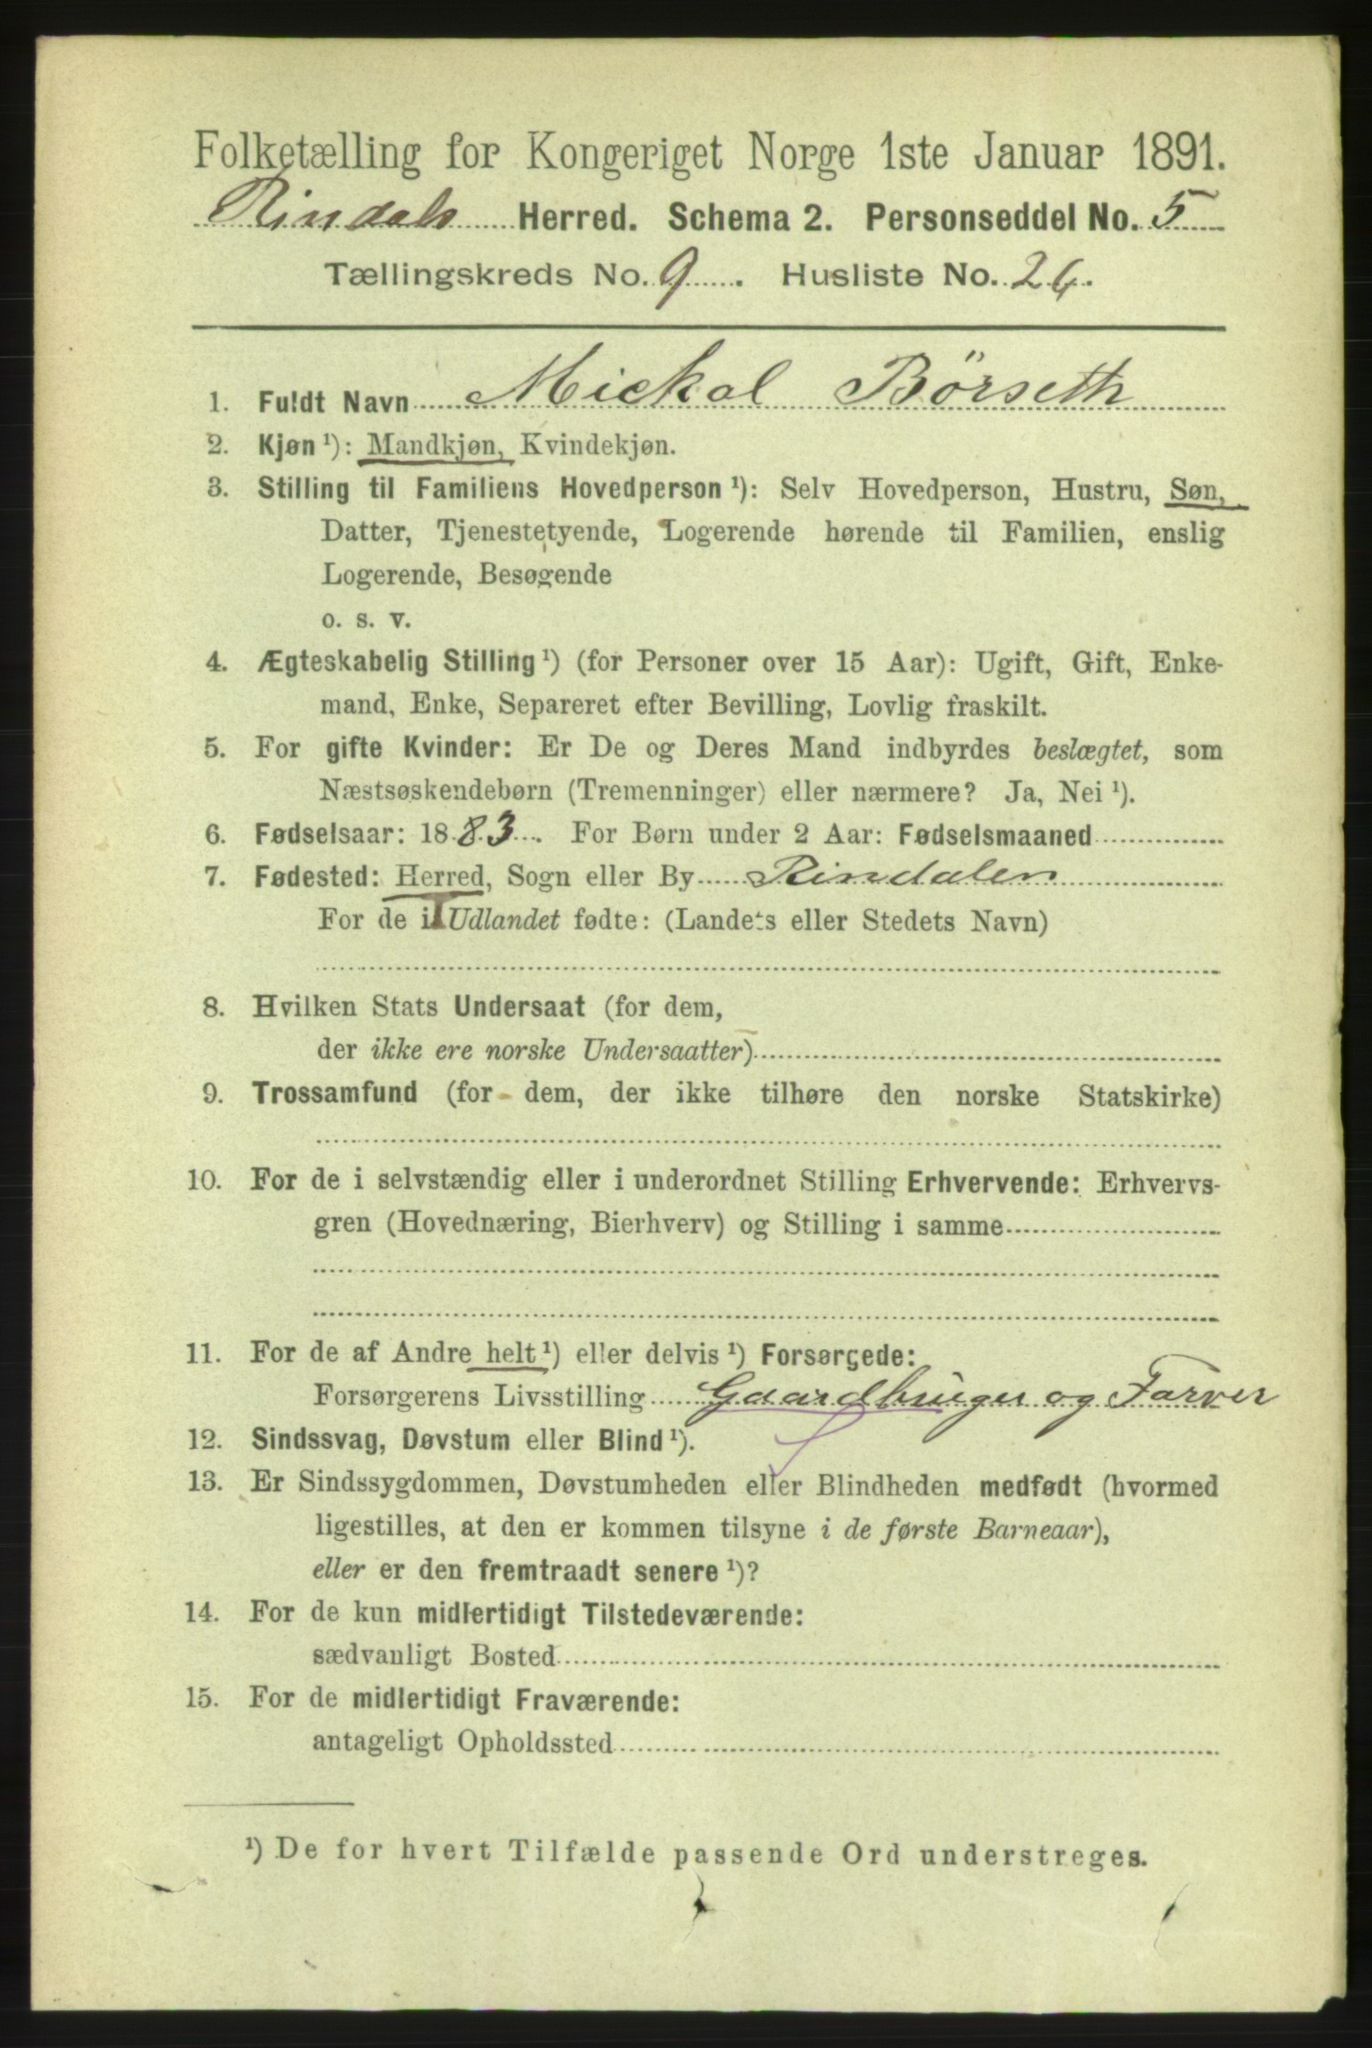 Folketælling for Kongeriget Norge 1ste Januar 1891.
Rindals Herred. Schema 2. Personseddel No. 5
Tællingskreds No. 9. Husliste No. 26.
1. Fuldt Navn Mickal Börseth
2. Kjøn ¹): Mandkjøn, Kvindekjøn.
3. Stilling til Familiens Hovedperson ¹): Selv Hovedperson, Hustru, Søn,
Datter, Tjenestetyende, Logerende hørende til Familien, enslig
Logerende, Besøgende
o. s. v.
4. Ægteskabelig Stilling ¹) (for Personer over 15 Aar): Ugift, Gift, Enke-
mand, Enke, Separeret efter Bevilling, Lovlig fraskilt.
5. For gifte Kvinder: Er De og Deres Mand indbyrdes beslægtet, som
Næstsøskendebørn (Tremenninger) eller nærmere? Ja, Nei ¹).
6. Fødselsaar: 1883. For Børn under 2 Aar: Fødselsmaaned
7. Fødested: Herred, Sogn eller By Rindalen
For de i Udlandet fødte: (Landets eller Stedets Navn)
8. Hvilken Stats Undersaat (for dem,
der ikke ere norske Undersaatter)
9. Trossamfund (for dem, der ikke tilhøre den norske Statskirke)
10. For de i selvstændig eller i underordnet Stilling Erhvervende: Erhvervs-
gren (Hovednæring, Bierhverv) og Stilling i samme
11. For de af Andre helt ¹) eller delvis ¹) Forsørgede:
Forsørgerens Livsstilling Gaardbruger og Farver
12. Sindssvag, Døvstum eller Blind ¹).
13. Er Sindssygdommen, Døvstumheden eller Blindheden medfødt (hvormed
ligestilles, at den er kommen tilsyne i de første Barneaar),
eller er den fremtraadt senere ¹)?
14. For de kun midlertidigt Tilstedeværende:
sædvanligt Bosted
15. For de midlertidigt Fraværende:
antageligt Opholdssted
¹) De for hvert Tilfælde passende Ord understreges.